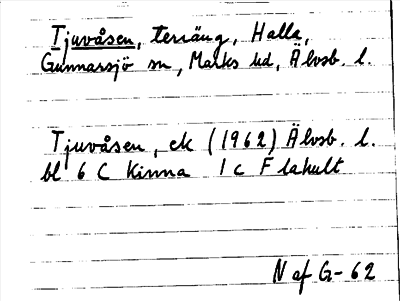 Tjuvåsen, terräng, Halla,
Gunnarsjö sn, Marks hd, Älvsb. l.
Tjuvåsen, ek (1962) Älvsb. l.
bl 6 C Kinna 1 c Flahult
N af G-62